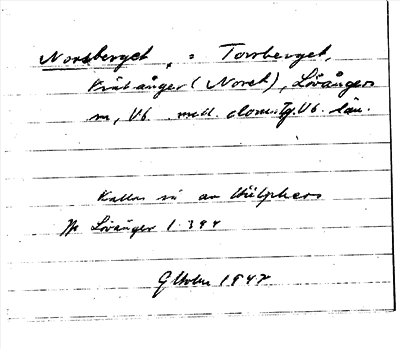 Norsberget, = Torrberget,
Kräkånger (Noret), Lövångers
sn, Vb. med. doms. Vb. län.
Kallas så av Hülphers
Lövånger 1. 394
G Holm 1947